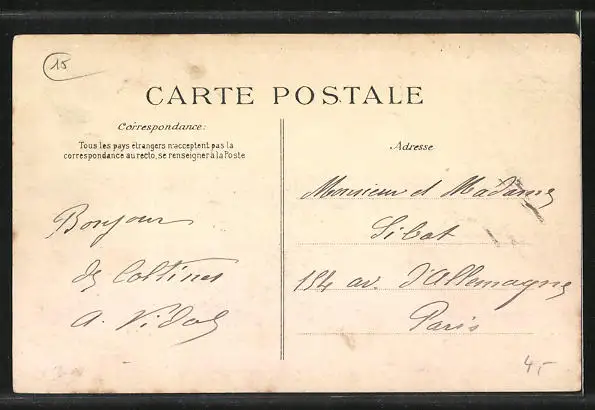 15
CARTE POSTALE
Correspondance:
Tous les pays étrangers n'acceptent pas la
correspondance au recto, se renseigner à la Poste
Bonjour
A. Vidal
Adresse
Monsieur et Madame
Sibot
154 av. d'Allemagne
Paris
4,-